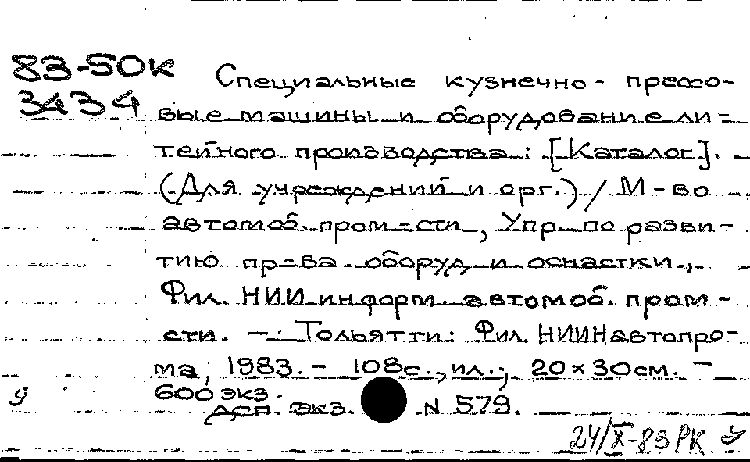 83-50к
3434
Специальные кузнечно-прессо-
вые машины и оборудование ли-
тейного производства: [Каталог].
(Для учреждений и орг.) / М-во
автомоб. пром-сти, Упр. по разви-
тию пр-ва оборуд. и оснастки.,
Фил. НИИ информ. автомоб. пром-
сти. - Тольятти: Фил. НИИНавтопро-
ма, 1983. - 108с., ил.; 20×30см. -
600 экз.
9 ДСП. экз. N 579.
24/X-83 РК